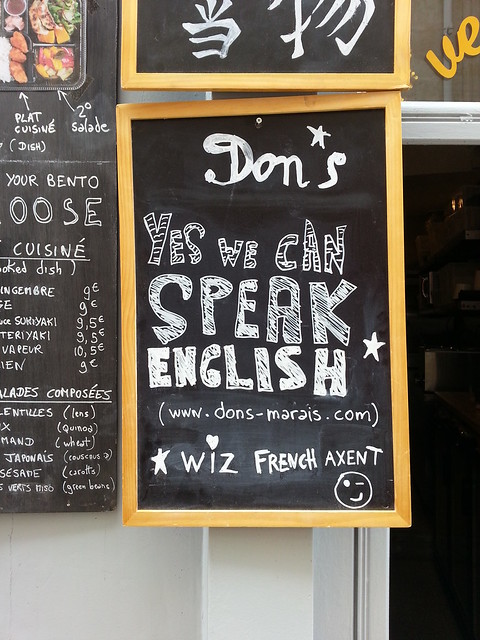 当 物
ve
PLAT
CUISINÉ
(DISH)
2°
salade
YOUR BENTO
OOSE
CUISINÉ
oked dish )
INGEMBRE 9€
GE 9€
uce SUKIYAKI 9,5€
TERIYAKI 9,5€
VAPEUR 10,5€
IEN 9€
ALADES COMPOSÉES
LENTILLES (lens)
X (quinoa)
MAND (wheat)
JAPONAIS (couscous)
SÉSAME (carotts)
S VERTS MISO (green beans)
Don's
YES WE CAN
SPEAK
ENGLISH
(www.dons-marais.com)
WIZ FRENCH AXENT